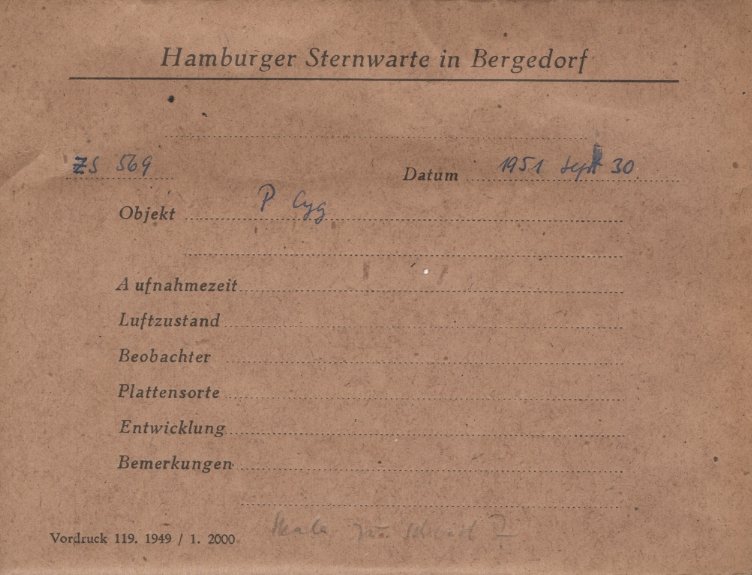 Hamburger Sternwarte in Bergedorf
ZS 569 Datum 1951 Sept 30
Objekt P Cyg
Aufnahmezeit
Luftzustand
Beobachter
Plattensorte
Entwicklung
Bemerkungen
Vordruck 119. 1949 / 1. 2000